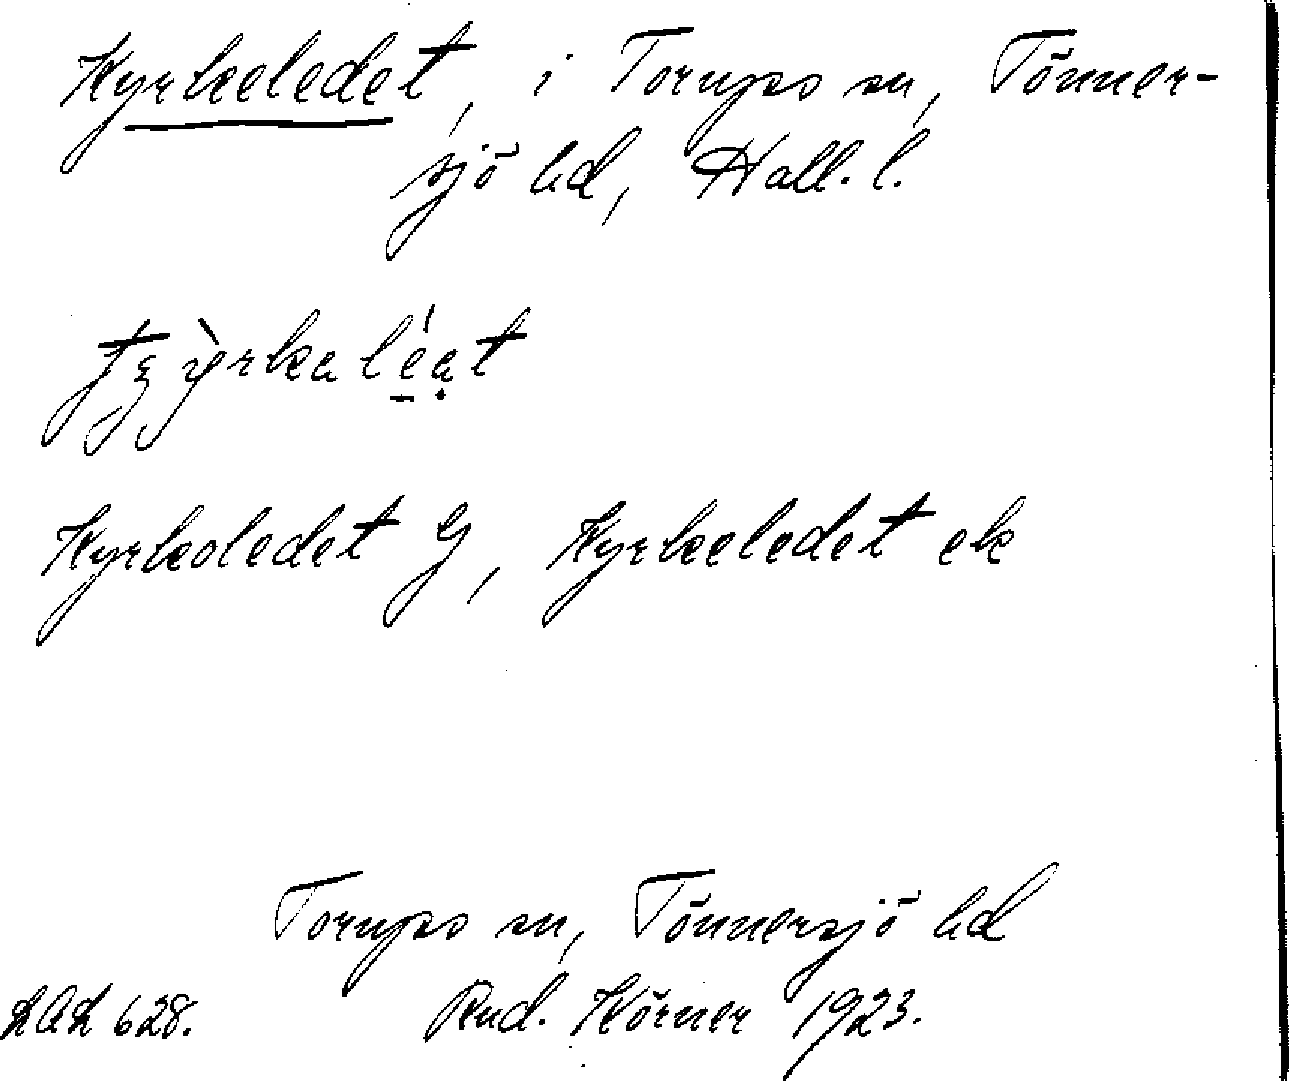 Kyrkeledet, i Torups sn, Tönner-
sjö hd, Hall. l.
Kyrkoledet G, Kyrkeledet ek
Torups sn, Tönnersjö hd
LAL 628. Rud. Hörner 1923.